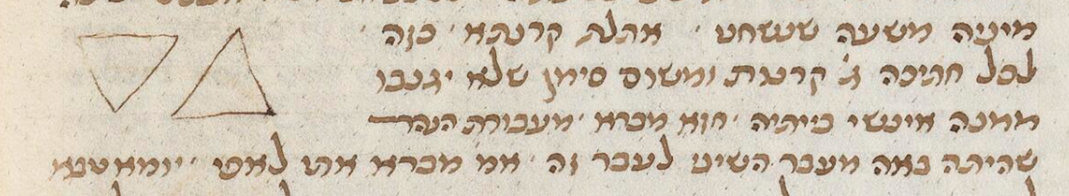 מינה משעה שנשחט אתלת קרנתא כזה
לכל חתיכה ג' קרנות ומשום סימן שלא יגנבו
ממנה אינשי ביתיה חזא מברא מעבורת הנהר
שהיתה באה מעבר השיני לעבר זה אמ' מברא אתי לאפי יומא טבא